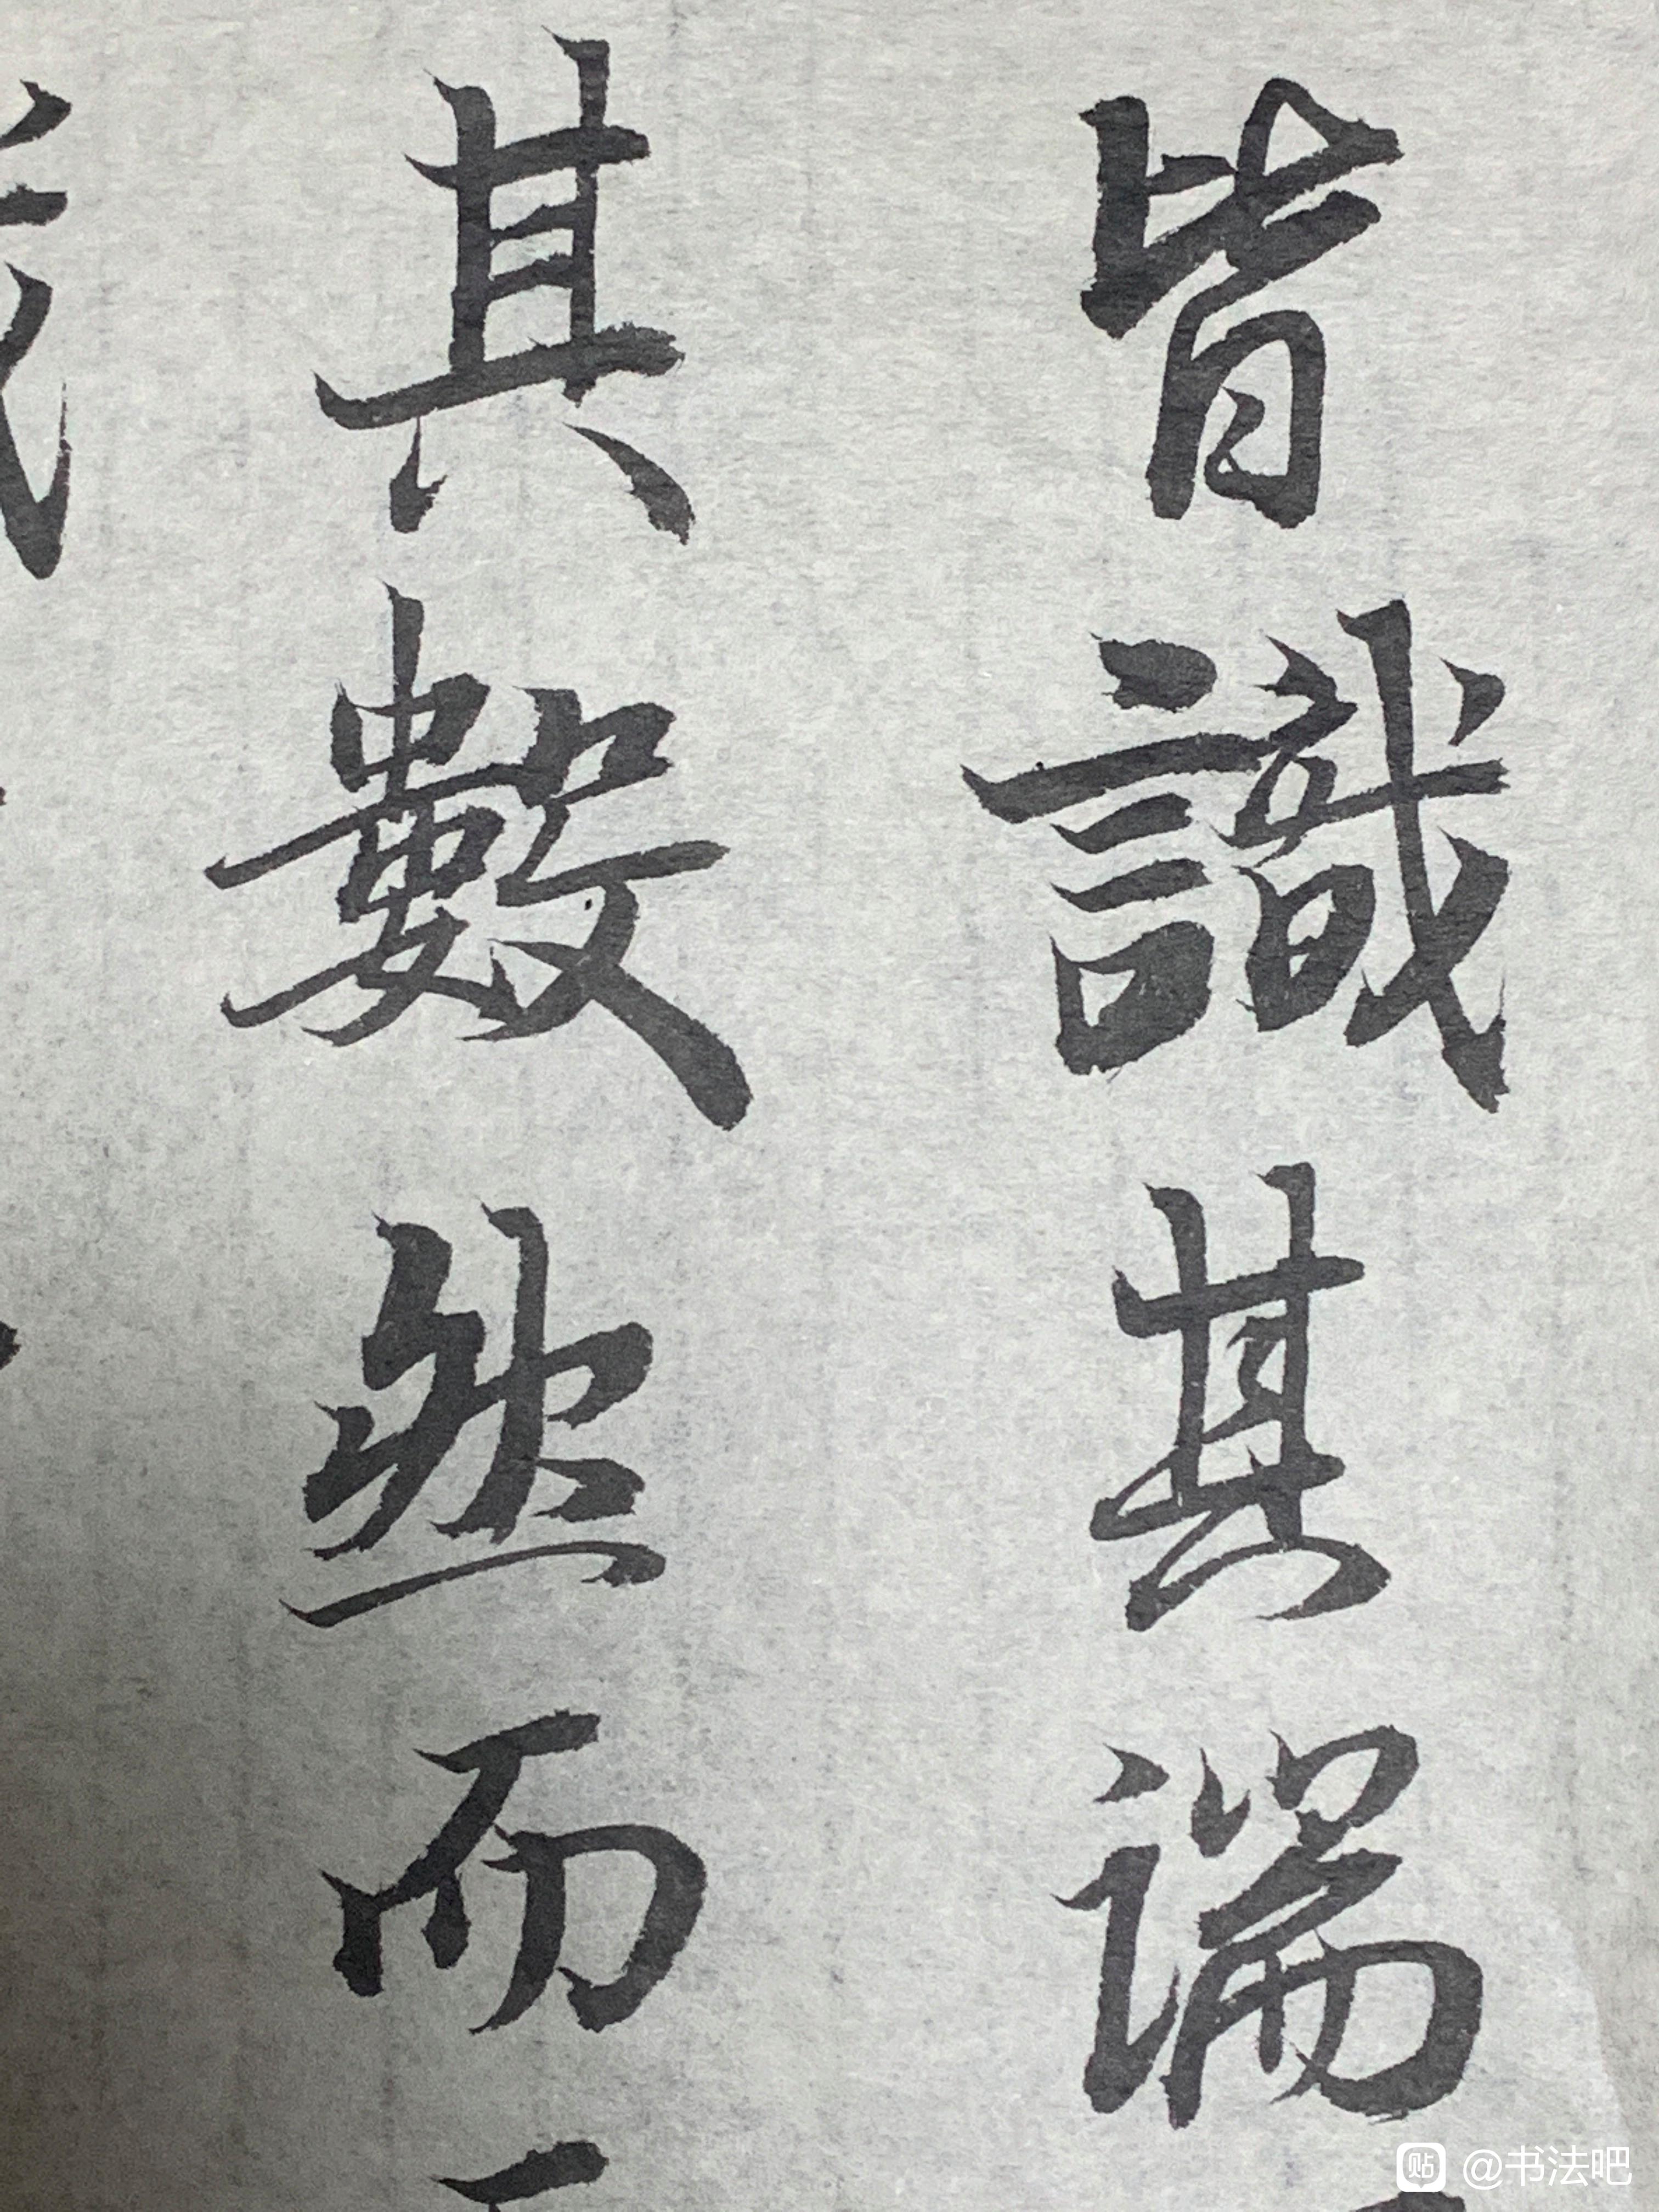 皆識其端
其數然而
贴 @书法吧